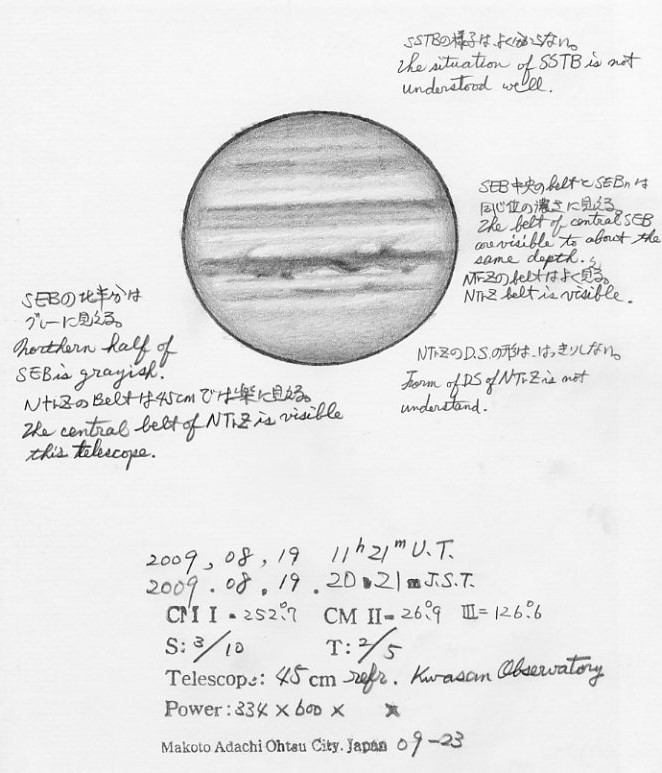 SSTBの様子は、よく分らない。
The situation of SSTB is not
understood well.
SEB中央のbeltとSEBnは
同じ位の濃さに見える。
The belt of central SEB
are visible to about the
same depth.
NTrZのbeltはよく見る。
NTrZ belt is visible.
SEBの北半分は
グレーに見える。
Northern half of
SEB is grayish.
NTrZのBeltは45cmでは楽に見える。
The central belt of NTrZ is visible
this telescope.
NTrZのD.S.の形は、はっきりしない。
Form of DS of NTrZ is not
understand.
2009, 08, 19 11h21m U.T.
2009.08.19.20 21 J.S.T.
CM I = 252°.7 CM II = 26°.9 III = 126°.6
S: 3/10 T: 2/5
Telescope: 45 cm refr. Kwasan Observatory
Power: 334 × 600 ×
Makoto Adachi Ohtsu City. Japan 09-23